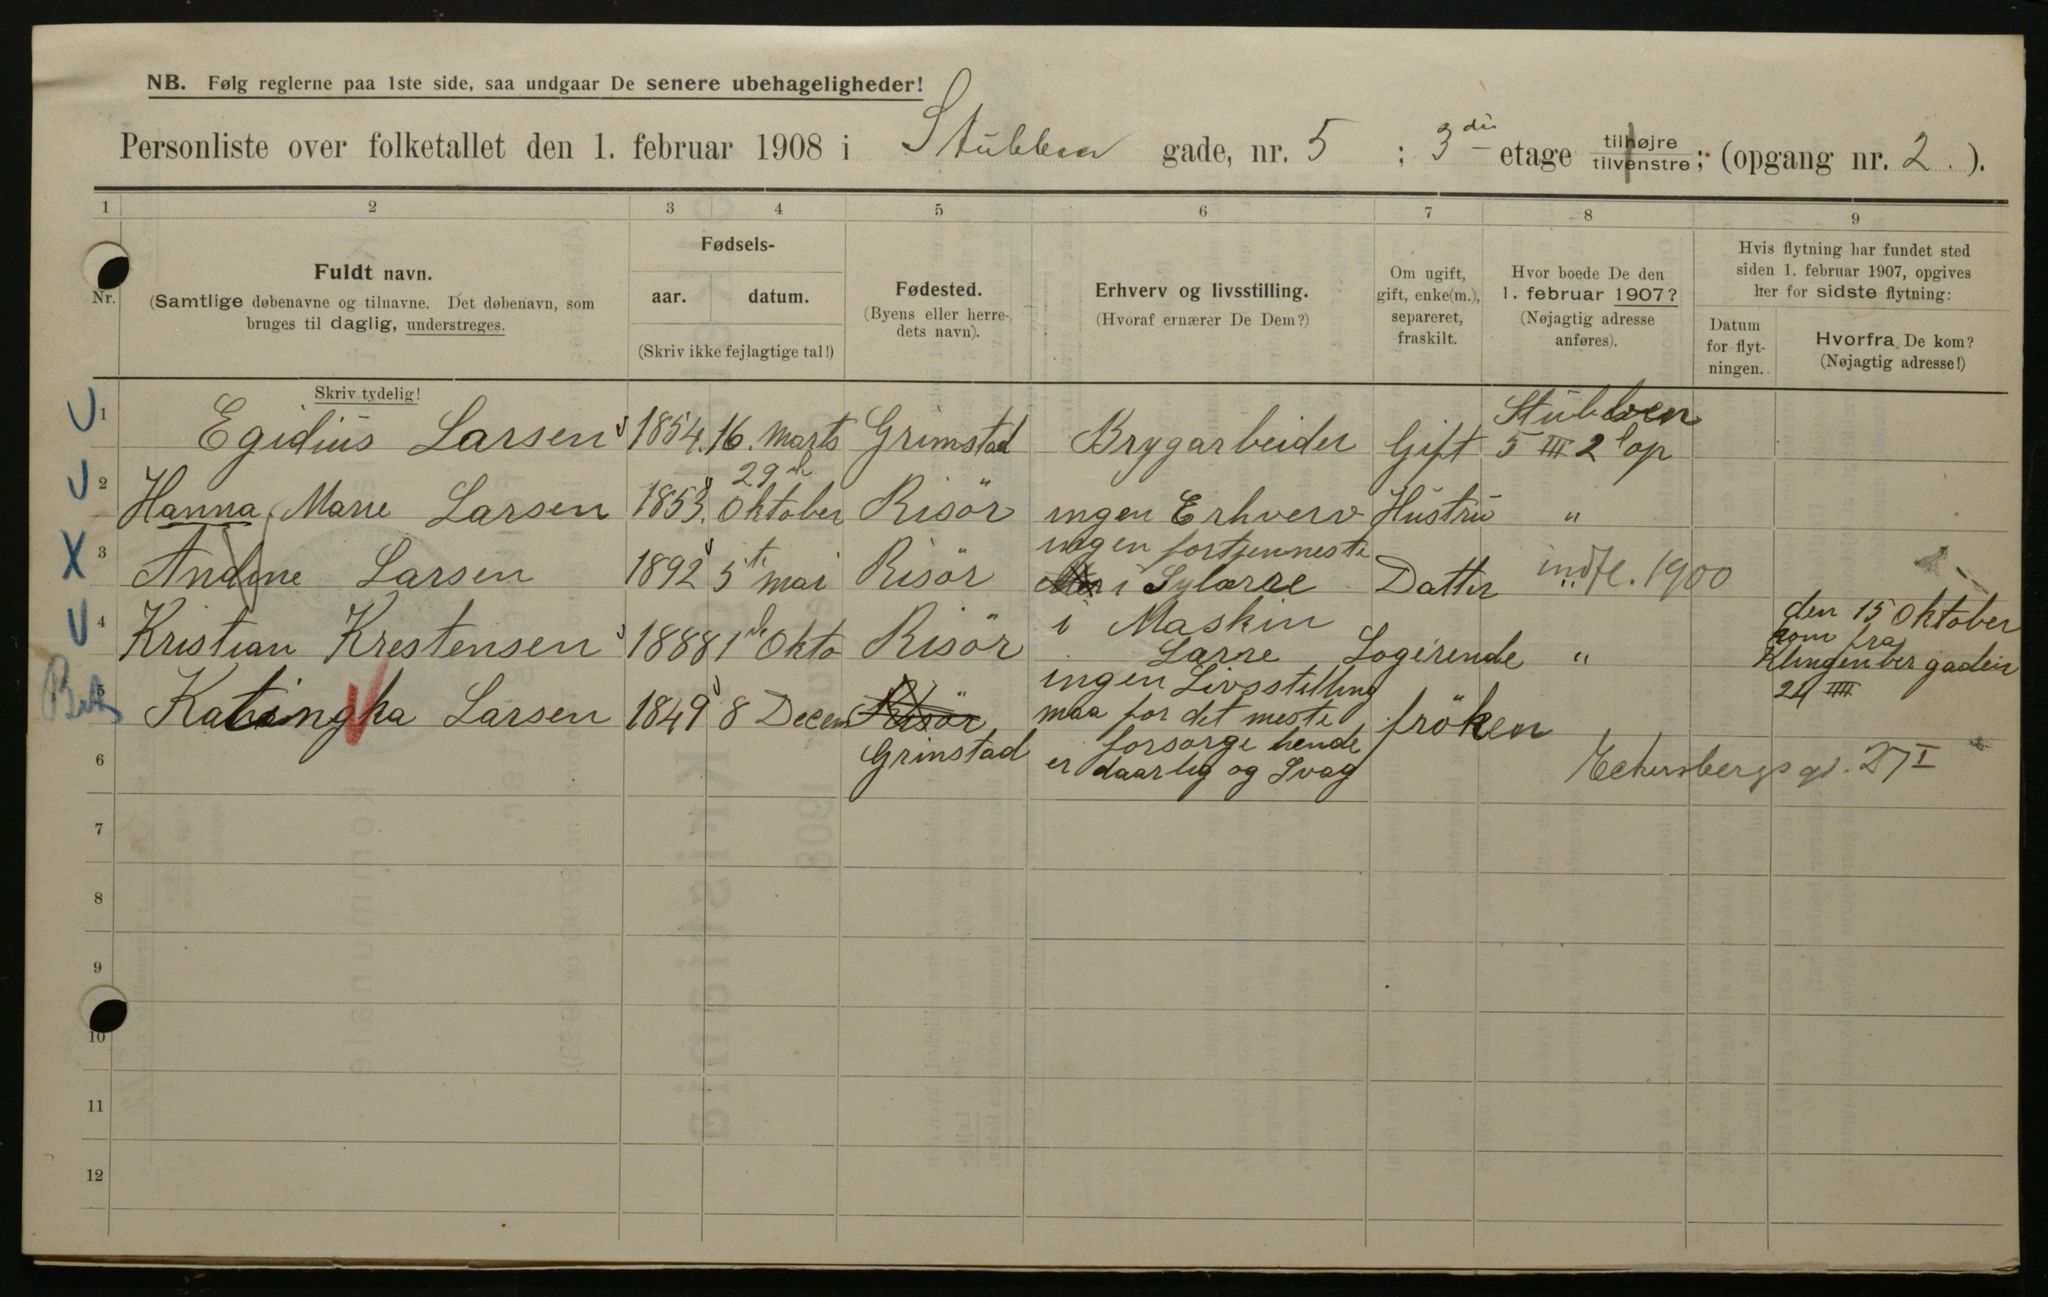 NB. Følg reglerne paa 1ste side, saa undgaar De senere ubehageligheder!
Personliste over folketallet den 1. februar 1908 i Stubben gade, nr. 5 ; 3die etage tilhøjre tilvenstre; (opgang nr. 2. ).
1 2 3 4 5 6 7 8 9
Nr.
Fuldt navn.
(Samtlige døbenavne og tilnavne. Det døbenavn, som
bruges til daglig, understreges.
Skriv tydelig!
Fødsels-
aar. datum.
(Skriv ikke fejlagtige tal!)
Fødested.
(Byens eller herre-
dets navn).
Erhverv og livsstilling.
(Hvoraf ernærer De Dem?)
Om ugift,
gift, enke(m.),
separeret,
fraskilt.
Hvor boede De den
1. februar 1907?
(Nøjagtig adresse
anføres).
Hvis flytning har fundet sted
siden 1. februar 1907, opgives
her for sidste flytning:
Datum
for flyt-
ningen.
Hvorfra De kom?
(Nøjagtig adresse!)
1 Egidius Larsen 1854. 16. Marts Grimstad Brygarbeider Gift Stubben
5 III 2 op
2 Hanna Marie Larsen 1853. 29 Oktober Risör ingen Erhverv Hustru "
3 Andine Larsen 1892 5 mai Risör ingen fortjenneste
i Sylære Datter " indfl. 1900
4 Kristian Krestensen 1888 1 Okto Risör i Maskin
Lærre Logirende " den 15 Oktober
kom fra
Klingenber gaden
24 IIII
5 Katingka Larsen 1849 8 Decem Risör
Grinstad
ingen Livsstilling
maa for det meste
forsorge hende
er daarlig og Svag
fröken
6 Eckersbergs gd. 27 I
7
8
9
10
11
12